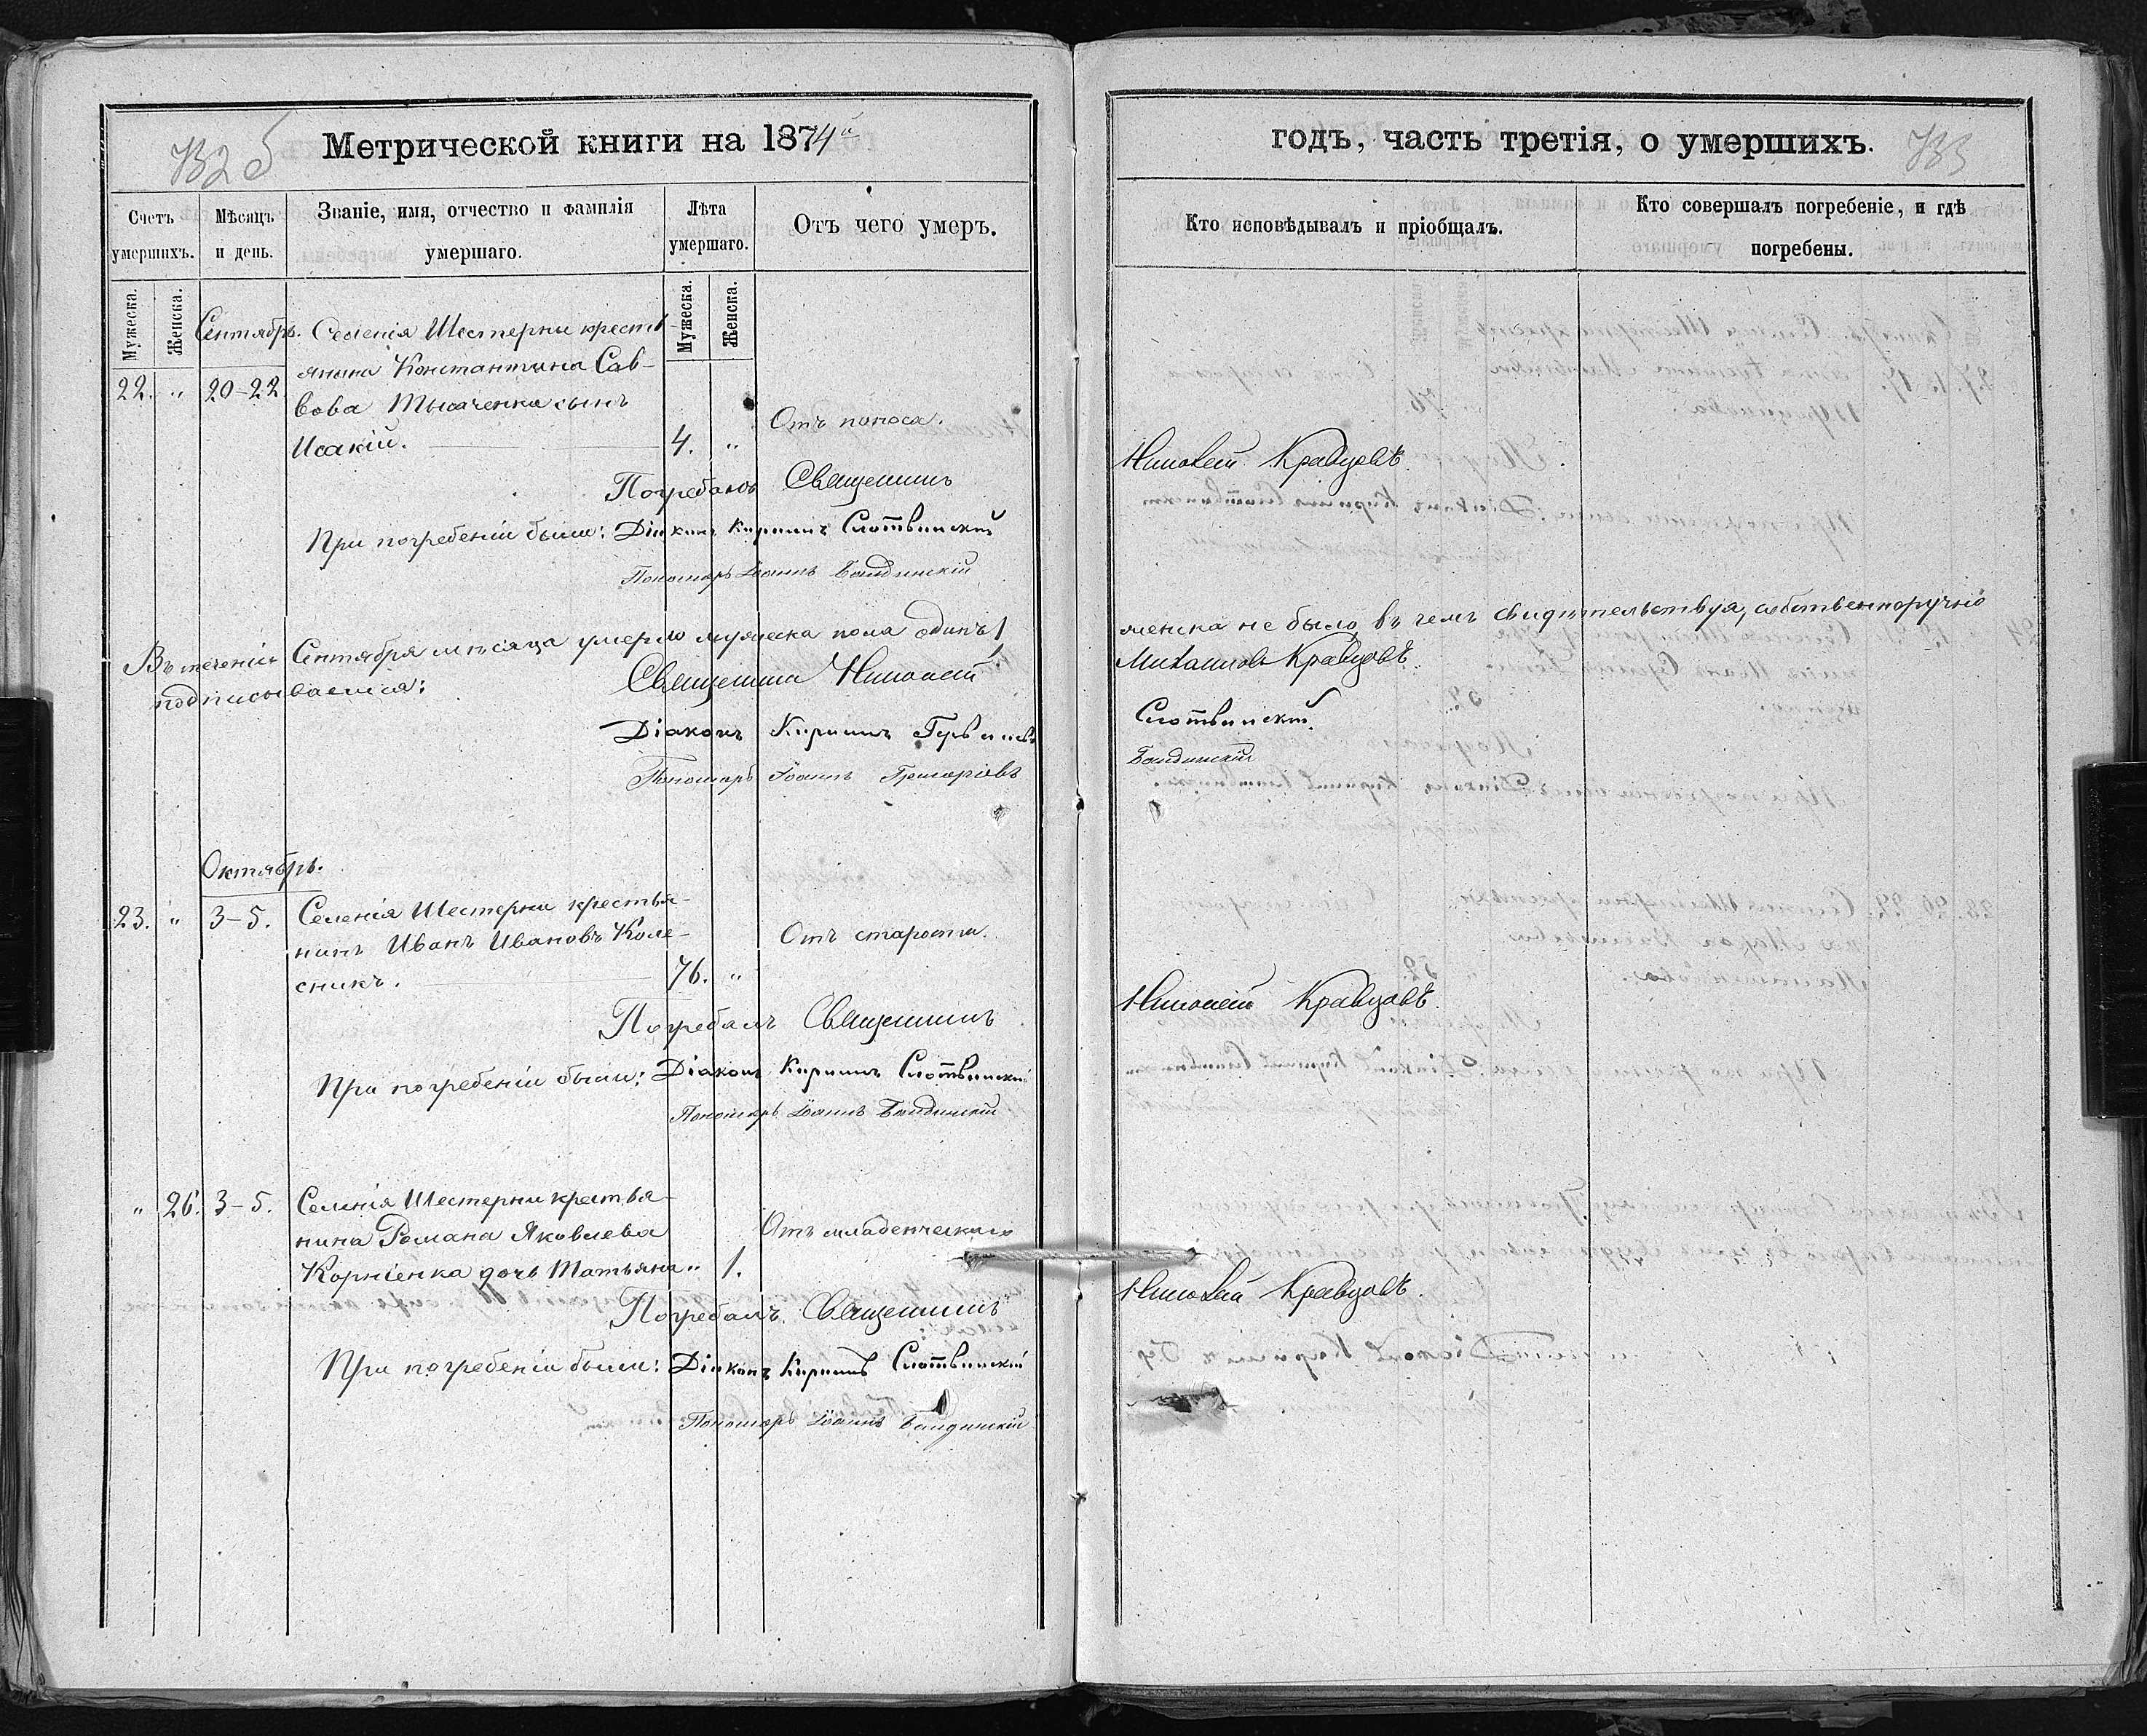 Метрической книги на 1874й
Счетъ умершихъ.
Мѣсяцъ и день.
Званіе, имя, отчество и фамилія умершаго.
Лѣта умершаго.
Отъ чего умеръ.
Мужеска.
Женска.
Мужеска.
Женска.
Сентябрь. Селенія Шестерни кресть
янина Константина Сав-
22. " 20-22 вова Тысаченка сынъ
Исакій. 4. " Отъ поноса.
Погребалъ Священникъ
При погребеніи были: Діаконъ Кириллъ Слотвинскій
Пономарь Іоаннъ Бандинскій
Въ теченіи Сентября мѣсяца умерло мужеска пола одинъ 1
подписываемся: Священникъ Николай
Діаконъ Кириллъ
Пономарь Іоаннъ Григоріевъ
Октябрь.
23. " 3-5. Селенія Шестерни крестья-
нинъ Иванъ Ивановъ Коле- Отъ старости.
сникъ. 76. "
Погребалъ Священникъ
При погребеніи были: Діаконъ Кириллъ Слотвинскій
Пономарь Іоаннъ Бандинскій
" 26. 3-5. Селенія Шестерни крестья-
нина Романа Яковлева Отъ младенческаго
Корніенка дочь Татьяна " 1.
Погребалъ Священникъ
При погребеніи были: Діаконъ Кириллъ Слотвинскій
Пономарь Іоаннъ Бандинскій
годъ, часть третія, о умершихъ.
Кто исповѣдывалъ и пріобщалъ.
Кто совершалъ погребеніе, и гдѣ погребены.
Николай Кравцовъ.
женска не было, въ чемъ свидѣтельствуя, собственноручно
Михаиловъ Кравцовъ.
Слотвинскій.
Бандинскій
Николай Кравцовъ.
Николай Кравцовъ.